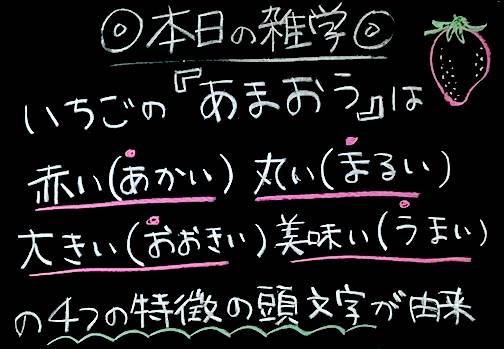 ◎本日の雑学◎
いちごの『あまおう』は
赤い(あかい) 丸い(まるい)
大きい(おおきい) 美味い(うまい)
の4つの特徴の頭文字が由来